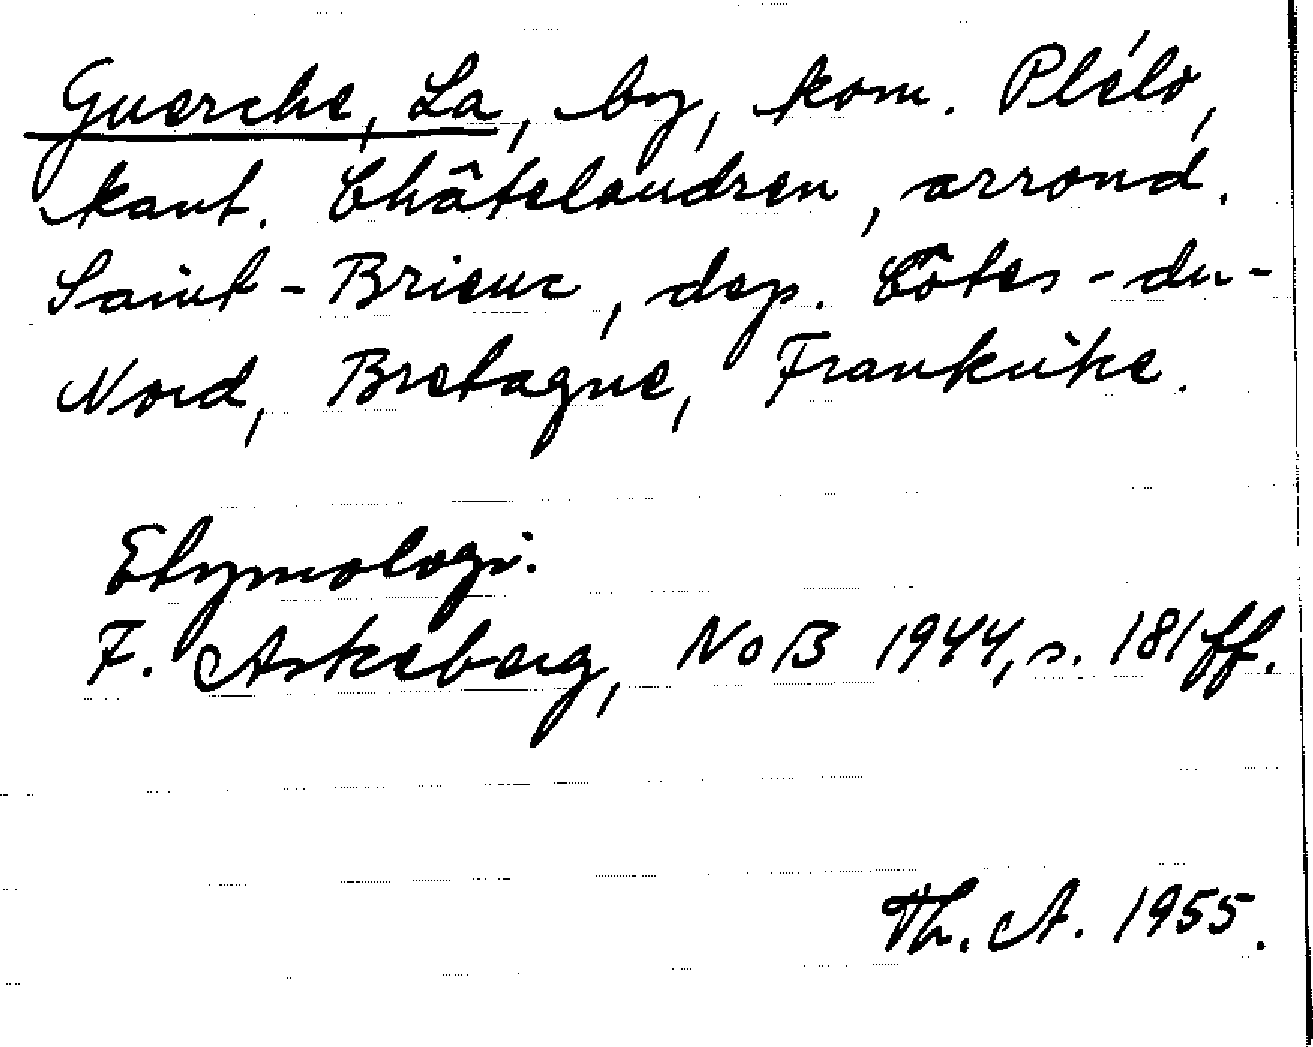 Guerche, La, by, kom. Plélo,
kant. Châtelaudren, arrond.
Saint-Brieuc, dep. Côtes-du-
Nord, Bretagne, Frankrike.
Etymologi:
F. Askeberg, NoB 1944, s. 181 ff.
Th. A. 1955.